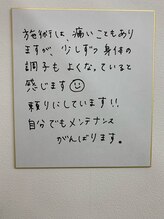 施術は、痛いこともあり
ますが、少しずつ身体の
調子もよくなっていると
感じます☺
頼りにしています!!
自分でもメンテナンス
がんばります。